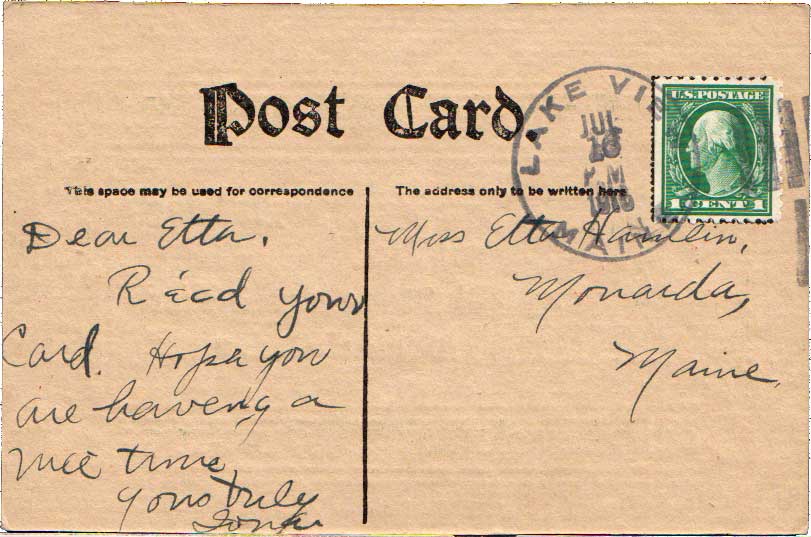 Post Card.
LAKE VIE
JUL
18
P M
MAINE
U.S. POSTAGE
1 CENT 1
This space may be used for correspondence
The address only to be written here
Dear Etta,
Rècd your
Card. Hope you
are haveng a
nice time,
yours truly
Miss Etta Hamlein,
Monarda,
Maine.